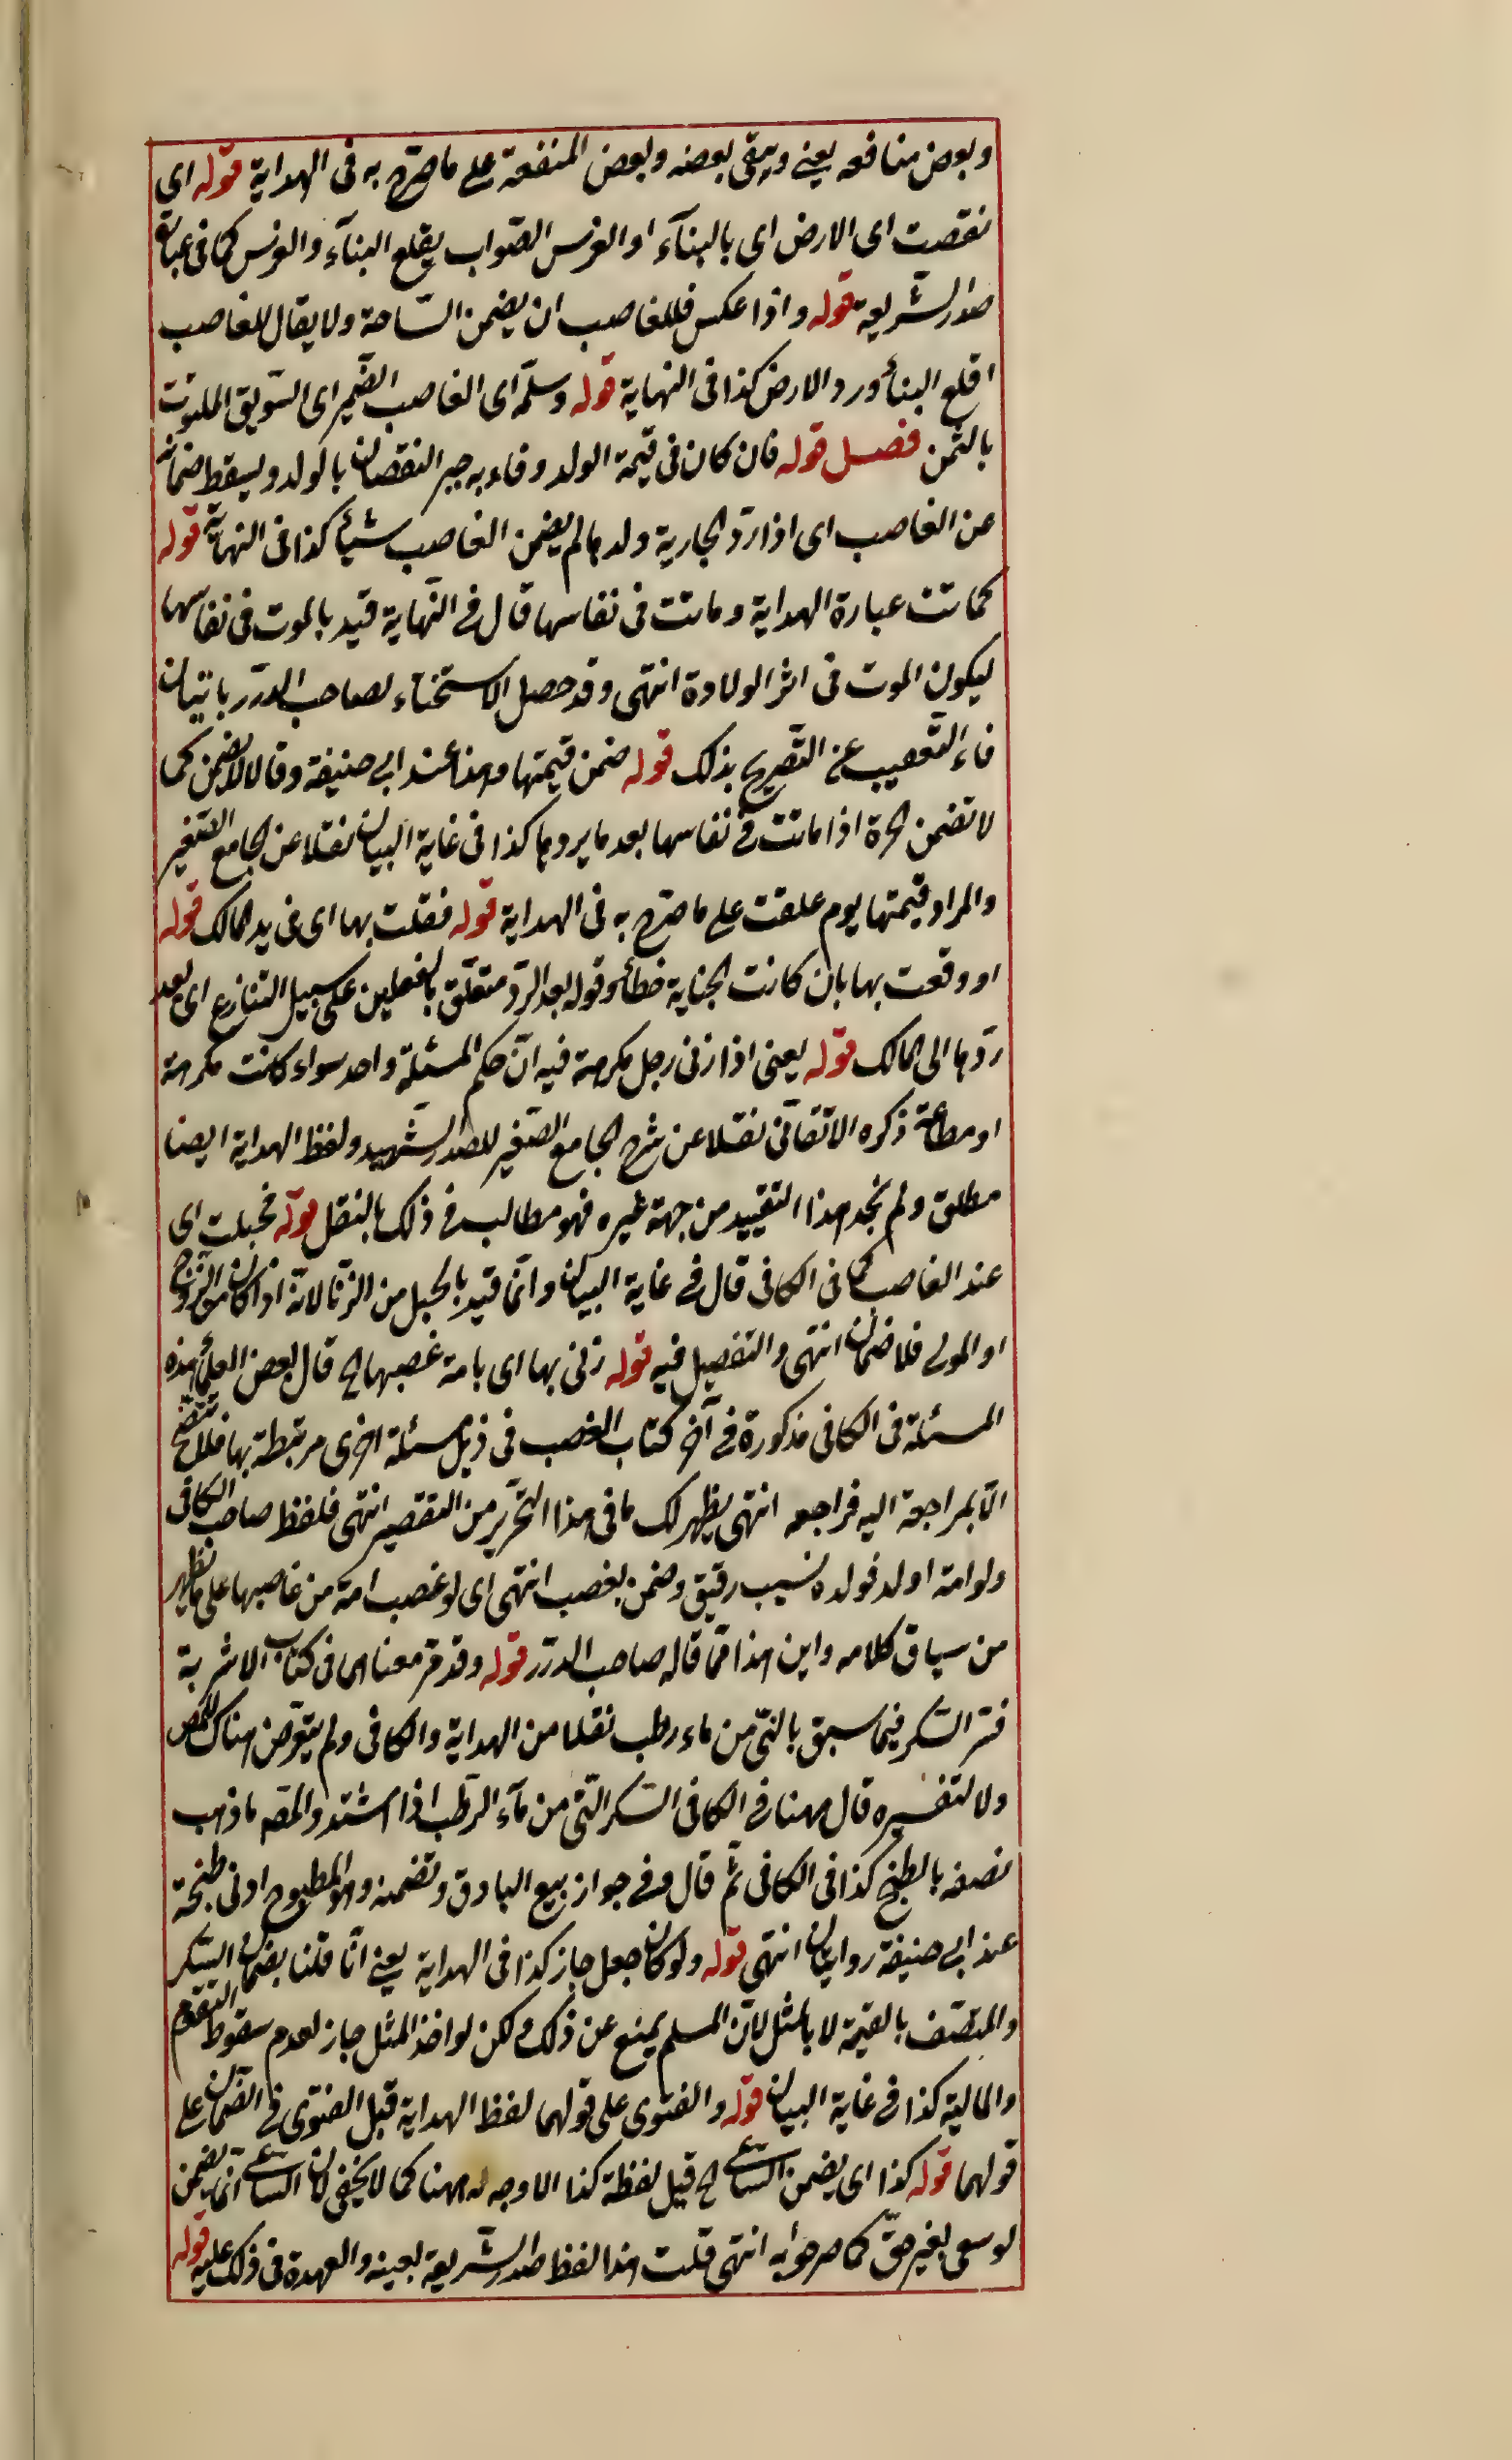 وبعض منافعه يعنى ويبقى بعضه وبعض المنفعة على ما صرّح به فى الهداية قوله اى
نقصت اى الارض اى بالبنآء او الغرس الصّواب بقلع البنآء والغرس كما فى عبارة
صدر الشّريعة قوله واذا عكس فللغاصب ان يضمن السّاحة ولا يقال للغاصب
اقلع البنآء ورد الارض كذا فى النهاية قوله وسلّمه اى الغاصب الضّمير اى السّويق الملتوت
بالثّمن فصل قوله فان كان فى قيمة الولد وفاء به جبر النقصان بالولد ويسقط ضمانه
عن الغاصب اى اذا ردّ الجارية وولدها لم يضمن الغاصب شيئا كذا فى النهاية قوله
كماتت عبارة الهداية وماتت فى نفاسها قال فى النّهاية قيد بالموت فى نفاسها
ليكون الموت فى اثر الولادة انتهى وقد حصل الاستغناء لصاحب الدّرر باتيان
فاء التّعقيب عن التّصريح بذلك قوله ضمن قيمتها وهذا عند ابى حنيفة وقالا لا يضمن كما
لا تضمن الحرة اذا ماتت فى نفاسها بعد ما يردها كذا فى غاية البيان نقلا عن الجامع الصّغير
والمراد قيمتها يوم علقت على ما صرّح به فى الهداية قوله فقتلت بها اى فى يد المالك قوله
او دفعت بها بان كانت الجناية خطأ وقوله بعد الرّد متعلّق بالفعلين على سبيل التنازع اى بعد
ردّها الى المالك قوله يعنى اذا زنى رجل مكرهة فيه انّ حكم المسئلة واحد سواء كانت مكرهة
او مطاوعة ذكره الاتقانى نقلا عن شرح الجامع الصّغير للصدر الشّهيد ولفظ الهداية ايضا
مطلق ولم نجد هذا التقييد من جهة غيره فهو مطالب فى ذلك بالنقل قوله فحبلت اى
عند الغاصب كما فى الكافى قال فى غاية البيان وانّما قيد بالحبل من الزّنا لانّه اذا كان من الزوج
او المولى فلا ضمان انتهى والتفصيل فيه قوله زنى بها اى بامة غصبها الخ قال بعض العلماء هذه
المسئلة فى الكافى مذكورة فى آخر كتاب الغصب فى ذيل مسئلة اخرى مرتبطة بها فلا تتضح
الّا بمراجعة اليه فراجعه انتهى يظهر لك ما فى هذا التّحرير من التقصير انتهى فلفظ صاحب الكافى
ولو امة اولد فولده نسيب رقيق وضمن بغصب انتهى اى لو غصب امة من غاصبها على ما يظهر
من سياق كلامه واين هذا ممّا قاله صاحب الدّرر قوله وقد مرّ معناهما فى كتاب الاشربة
فسّر السّكر فيما سبق بالنّى من ماء رطب نقلا من الهداية والكافى ولم يتعرّض هناك للمنصف
ولا لتفسيره قال ههنا فى الكافى السّكر النّى من مآء الرّطب اذا اشتد والمنصف ما ذهب
نصفه بالطبخ كذا فى الكافى ثمّ قال وفى جواز بيع الباذق وتضمينه وهو المطبوخ ادنى طبخة
عند ابى حنيفة روايتان انتهى قوله ولو كان جعل جاز كذا فى الهداية يعنى انّا قلنا بضمان السّكر
والمنصّف بالقيمة لا بالمثل لانّ المسلم يمنع عن ذلك ولكن لو اخذ المثل جاز لعدم سقوط التقوم
والمالية كذا فى غاية البيان قوله والفتوى على قولهما لفظ الهداية قيل الفتوى فى الضّمان على
قولهما قوله كذا اى يضمن السّاعى الخ قيل لفظة كذا لا وجه له ههنا كما لا يخفى لان السّاعى انّما يضمن
لو سعى بغير حقّ كما صرحوا به انتهى قلت هذا لفظ صدر الشّريعة بعينه والعهدة فى ذلك عليه قوله